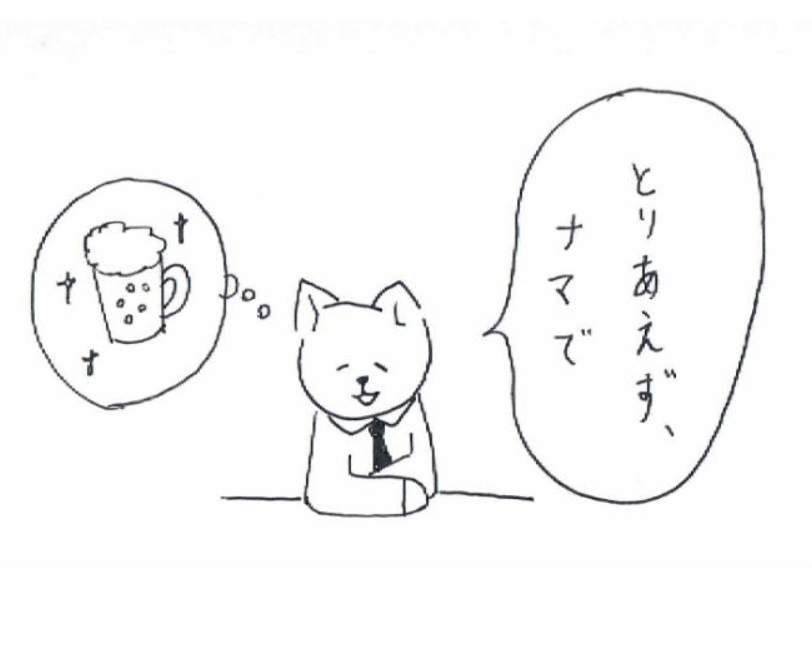 とりあえず、
ナマで